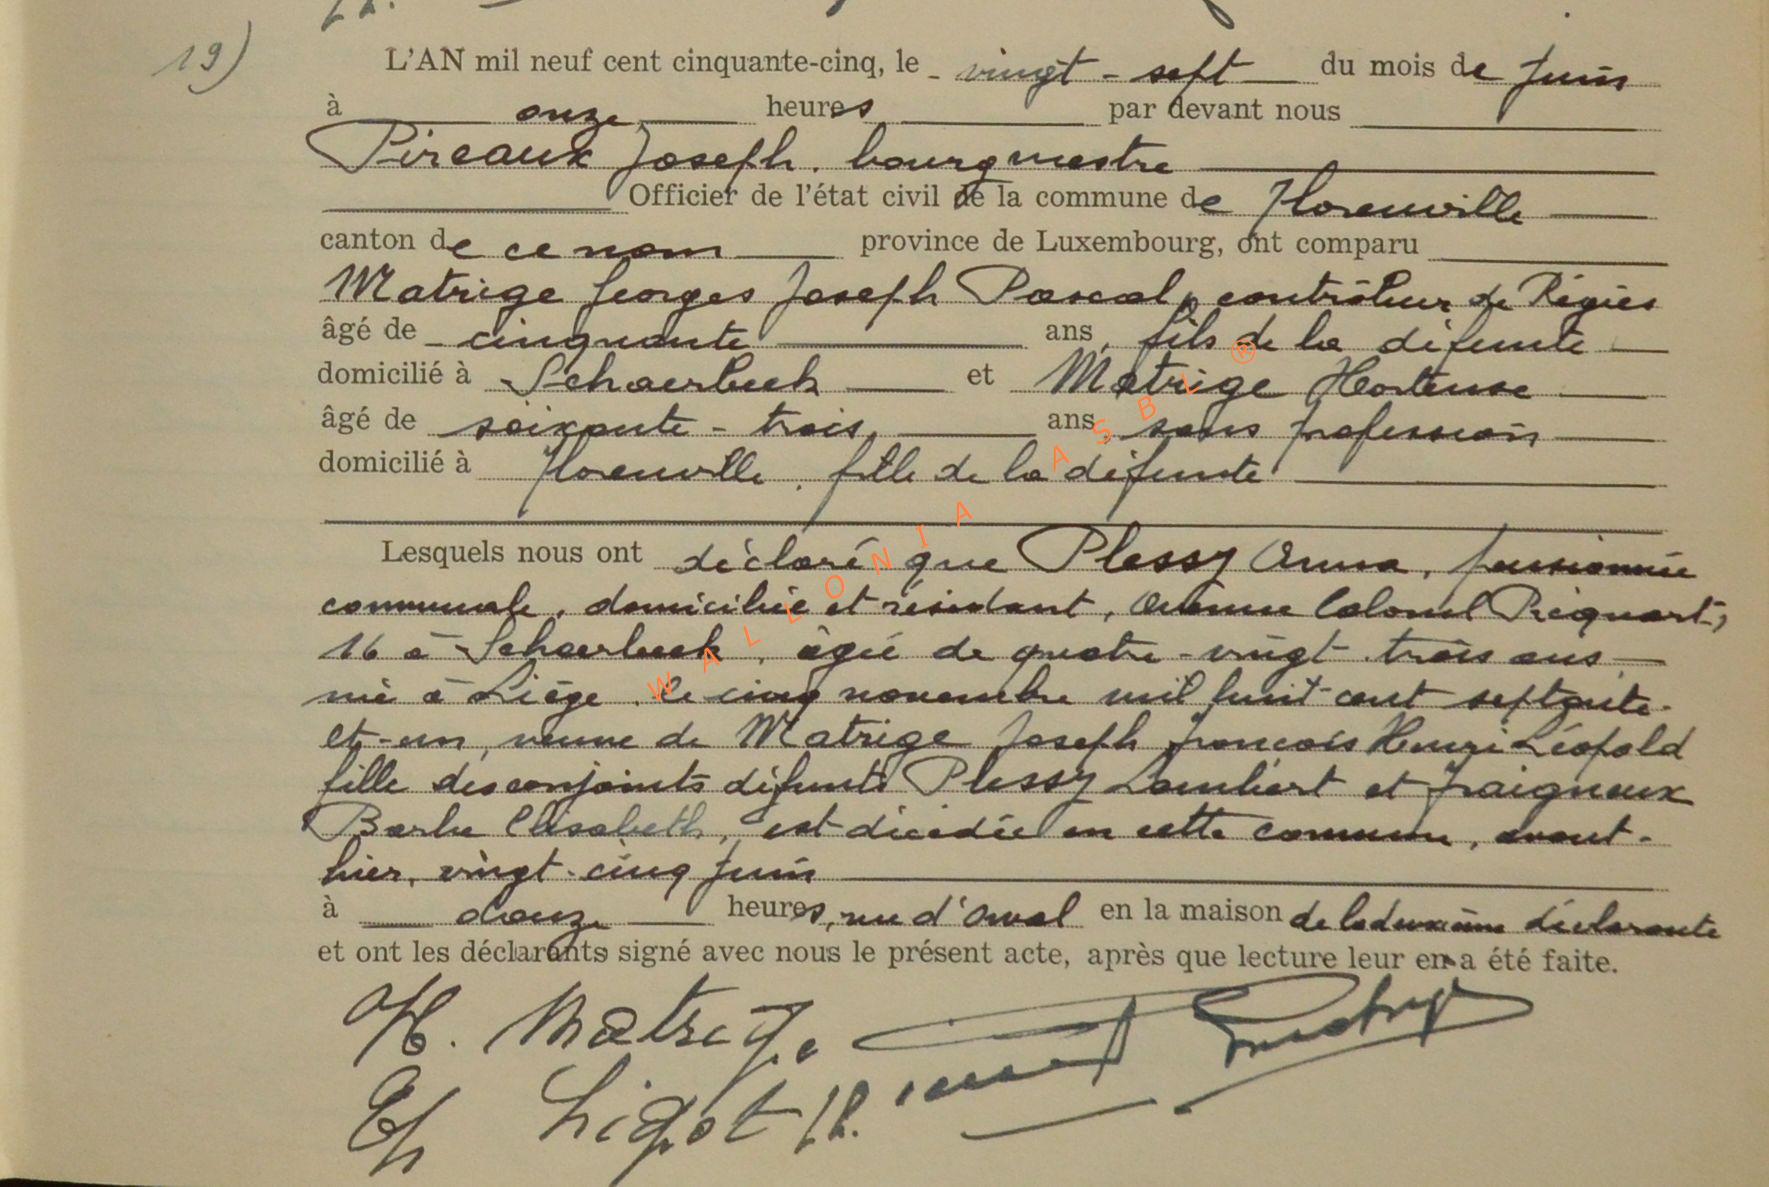 19)
L'AN mil neuf cent cinquante-cinq, le vingt-sept du mois de Juin
à onze heures par devant nous
Pireaux Joseph, bourgmestre
Officier de l'état civil de la commune de Florenville
canton de ce nom province de Luxembourg, ont comparu
Matrige Georges Joseph Pascal, contrôleur de Régies
âgé de cinquante ans, fils de la défunte
domicilié à Schaerbeek et Matrige Hortense
âgé de soixante-trois ans, sans profession
domicilié à Florenville, fille de la défunte
Lesquels nous ont déclaré que Plessy Anna, pensionnée
communale, domiciliée et résidant, Avenue Colonel Picquart,
16 à Schaerbeek, âgée de quatre-vingt-trois ans
née à Liège, le cinq novembre mil huit cent septante-
et-un, veuve de Matrige Joseph François Henri Léopold
fille des conjoints défunts Plessy Lambert et Fraigneux
Barbe Elisabeth, est décédée en cette commune, avant-
hier, vingt-cinq Juin
à douze heures, rue d'Orval en la maison de la deuxième déclarante
et ont les déclarants signé avec nous le présent acte, après que lecture leur en a été faite.
H. Matrige
Ep Ligot H.
WALLONIA ASBL ®